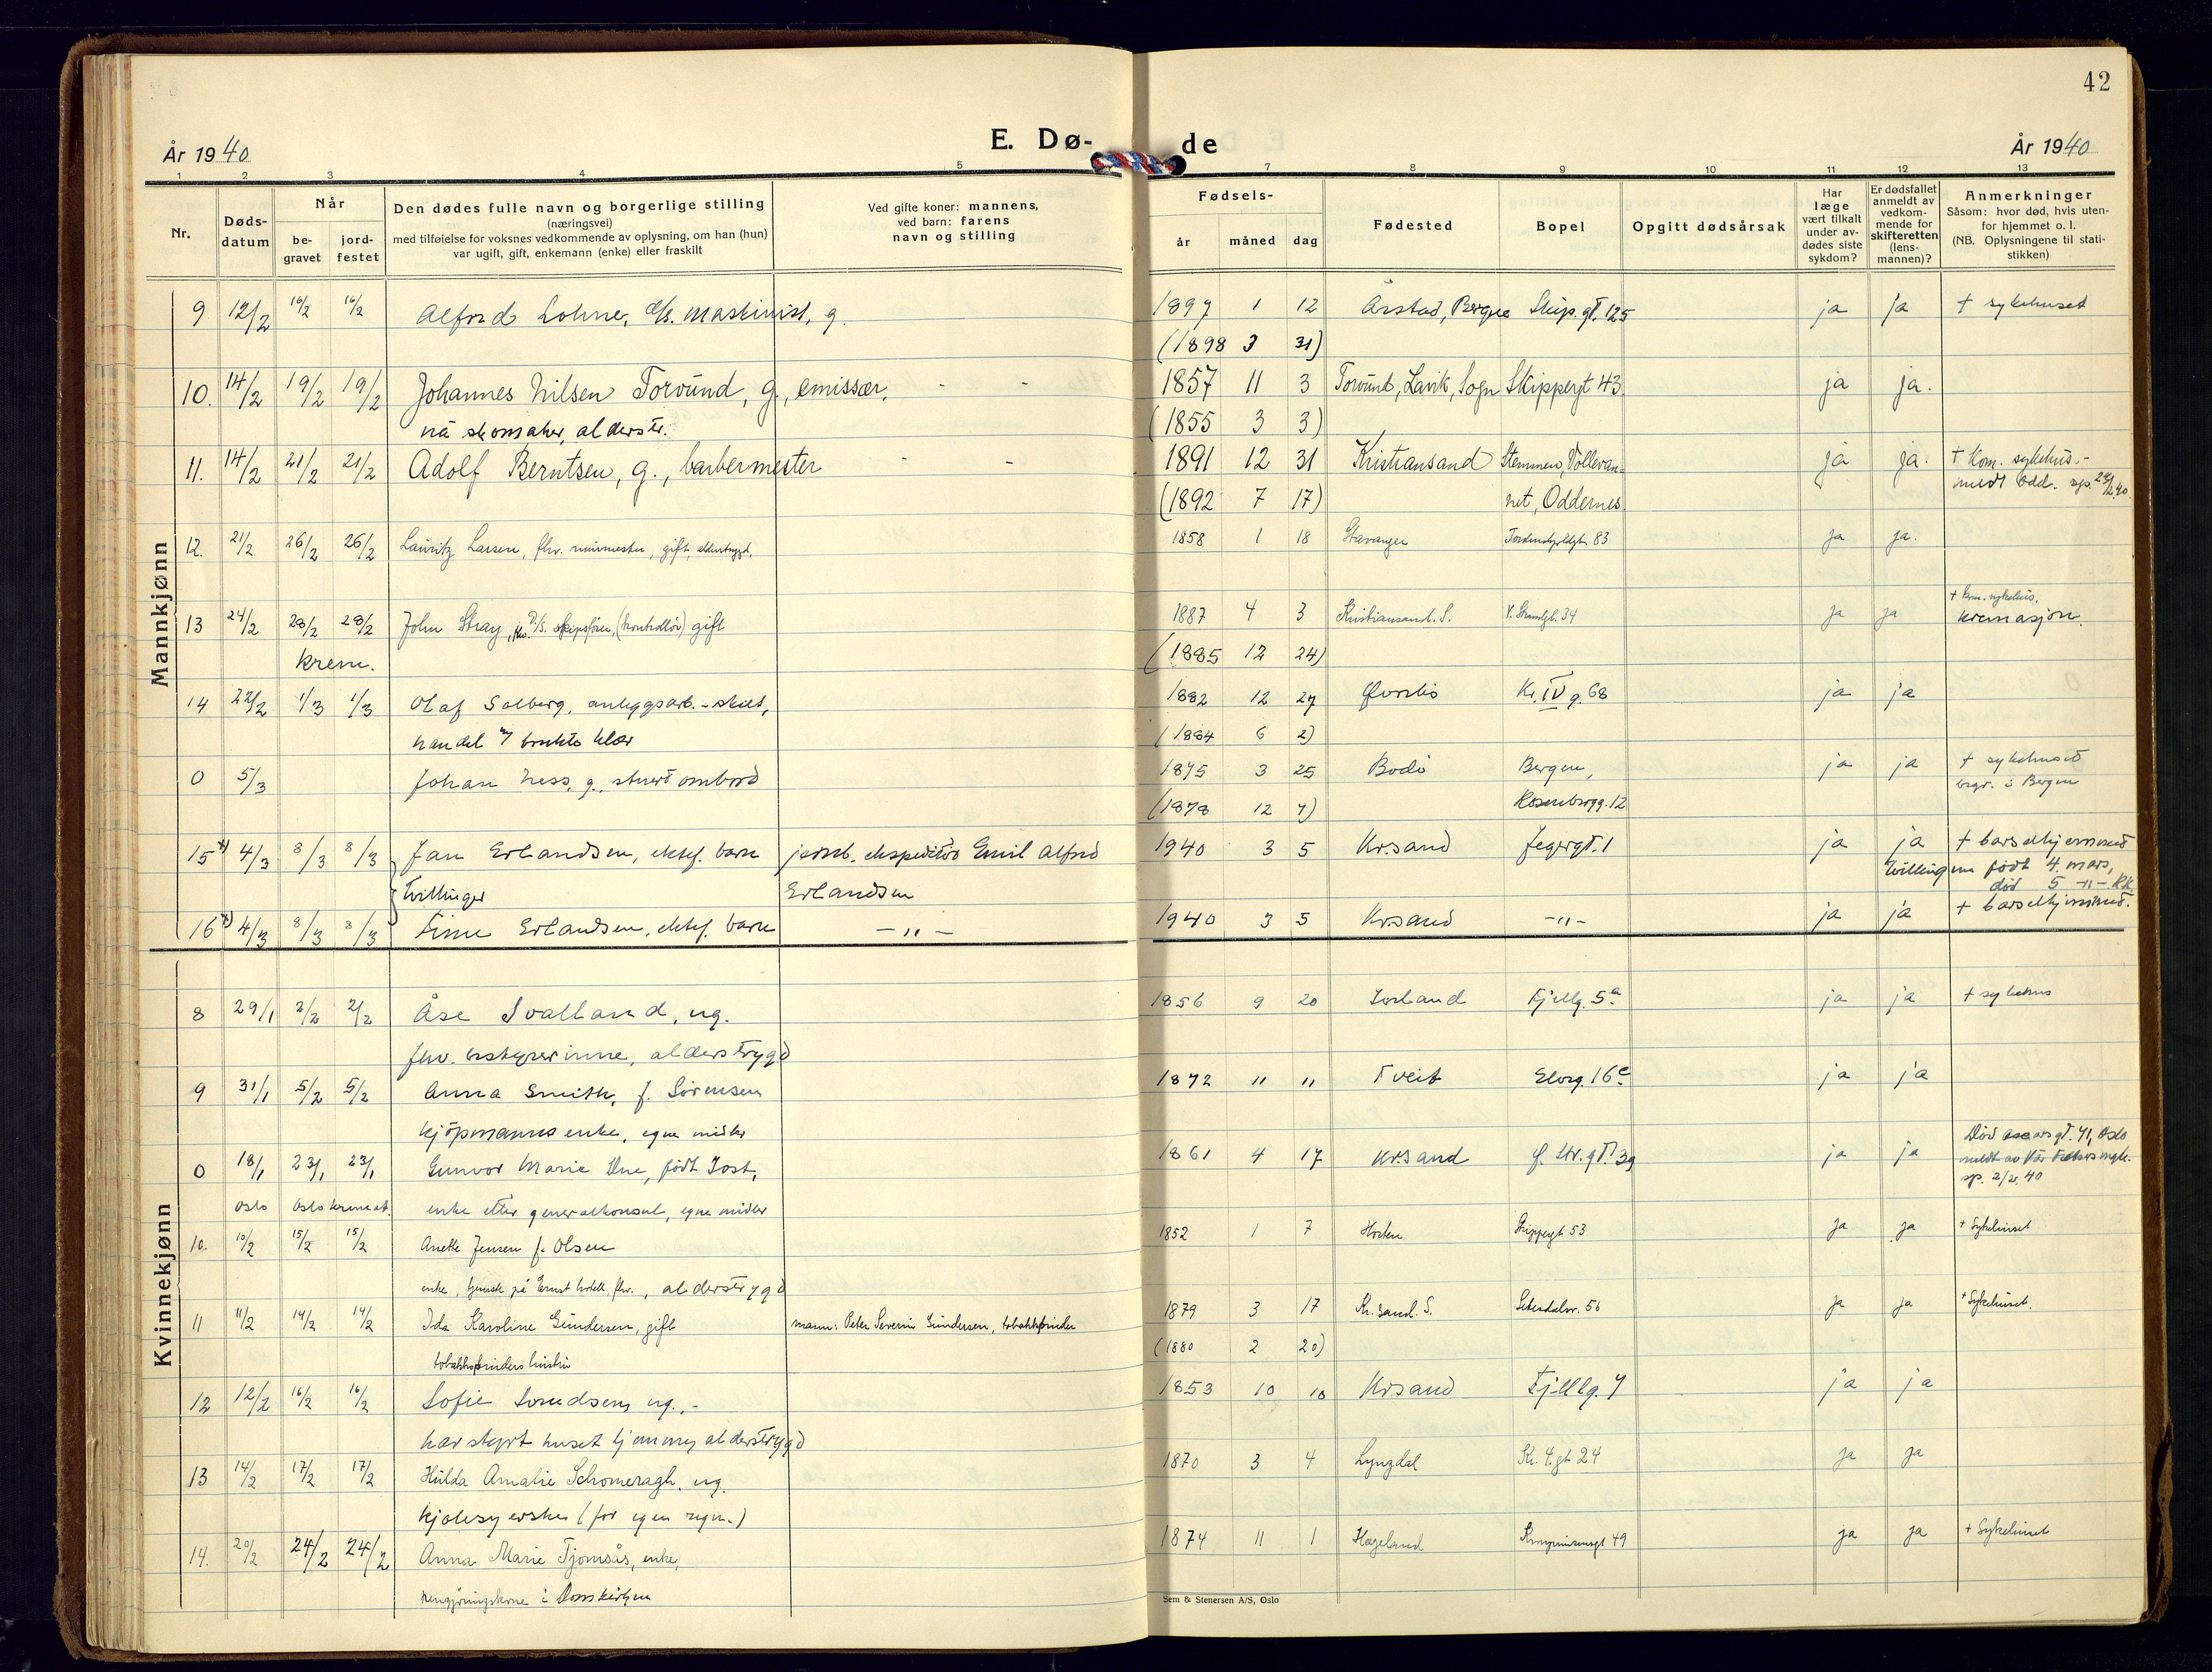 42
År 1940
E. Dø-
de
År 1940
1 2 3 4 5
7 8 9 10 11 12 13
Nr.
Døds-
datum
Når
be-
gravet
jord-
festet
Den dødes fulle navn og borgerlige stilling
(næringsvei)
med tilføielse for voksnes vedkommende av oplysning, om han (hun)
var ugift, gift, enkemann (enke) eller fraskilt
Ved gifte koner: mannens,
ved barn: farens
navn og stilling
Fødsels-
år måned dag
Fødested
Bopel
Opgitt dødsårsak
Har
læge
vært tilkalt
under av-
dødes siste
sykdom?
Er dødsfallet
anmeldt av
vedkom-
mende for
skifteretten
(lens-
mannen)?
Anmerkninger
Såsom: hvor død, hvis uten-
for hjemmet o. l.
(NB. Oplysningene til stati-
stikken)
Mannkjønn
9 12/2 16/2 16/2 Alfred Lohne, maskinist, g. 1897 1 12 Årstad, Bergen Skip.gt. 125 ja ja † sykehuset
(1898 3 31)
10. 14/2 19/2 19/2 Johannes Nilsen Torvund, g., emissær, 1857 11 3 Torvund, Lavik, Sogn Skippergt 43 ja ja.
nå skomaker, alderstr. (1855 3 3)
11. 14/2 21/2 21/2 Adolf Berntsen, g., barbermester 1891 12 31 Kristiansand Stemmen, Vollevan- ja ja. † Kom. sykehus.-
(1892 7 17) net, Oddernes meldt Odd. sp.
12. 21/2 26/2 26/2 Lauritz Larsen, fhv. murmester, gift, alderstrygd. 1858 1 18 Stavanger Tordenskjoldgt. 83 ja ja.
13 24/2 28/2 28/2 John Stray, skipsfører, (kontrollør) gift 1887 4 3 Kristiansand. S. V. Strandgt. 34 ja ja † kom. sykehus,
krem. (1885 12 24) kremasjon.
14 22/2 1/3 1/3 Olaf Solberg, anleggsarb. - skilt, 1882 12 27 Kr. IV g. 68 ja ja
handel m/ brukte klær (1884 6 2)
0 5/3 Johan Ness, g., stuert ombord 1875 3 25 Bodö Bergen, ja ja † sykehuset
(1878 12 7) Rosenborgg. 12 begr. i Bergen
15 4/3 8/3 8/3 Jan Erlandsen, ektef. barn jernb. ekspeditör Emil Alfred 1940 3 5 Kr.sand Jegergt. 1 ja ja † barselhjemmet
Tvillinger Erlandsen Tvillingene født 4. mars,
død 5 -"- KK.
16 4/3 8/3 8/3 Finn Erlandsen, ektef. barn -"- 1940 3 5 Kr.sand -"- ja ja † barselhjemmet.
Kvinnekjønn
8 29/1 2/2 2/2 Åse Svalland, ug. 1856 9 20 Iveland Fjellg. 5a ja ja † sykehus
fhv. bestyrerinne, alderstrygd
9 31/1 5/2 5/2 Anna Smith, f. Sörensen 1872 11 11 Tveit Elveg. 16c ja ja
kjöpmanns enke, egne midler
0 18/1 23/1 23/1 Gunvor Marie Une, født Tost, 1861 4 17 Kr.sand ja ja Död Oscarsgt. 41, Oslo
Oslo Oslo kremat. enke etter generalkonsul, egne midler sp. 2/2. 40
10. 10/2 15/2 15/2 Anette Jensen f. Olsen 1852 1 7 Horten Skippergt 53 ja ja † Sykehuset
enke, tjeneste på Ernst hotell, fhv., alderstrygd
11 11/2 14/2 14/2 Ida Karoline Gundersen, gift mann: Peter Severin Gundersen, tobakkspinder 1879 3 17 Kr.sand. S. Setesdalsv. 56 ja ja † Sykehuset.
tobakkspinders hustru (1880 2 20)
12 12/2 16/2 16/2 Sofie ug.,- 1853 10 10 Kr.sand Fjellg. 7 ja ja
har styrt huset hjemme, alderstrygd
13 14/2 17/2 17/2 Hilda Amalie Schomeragh, ug. 1870 3 4 Lyngdal Kr. 4. gt 24 ja ja
kjolesyerske (for egen regn.)
14. 20/2 24/2 24/2 Anna Marie Tjomsås, enke, 1874 11 1 Hægeland Kronprinsensgt 49 ja ja † Sykehuset
rengjøringskone i Domskirken
Sem & Stenersen A/S, Oslo